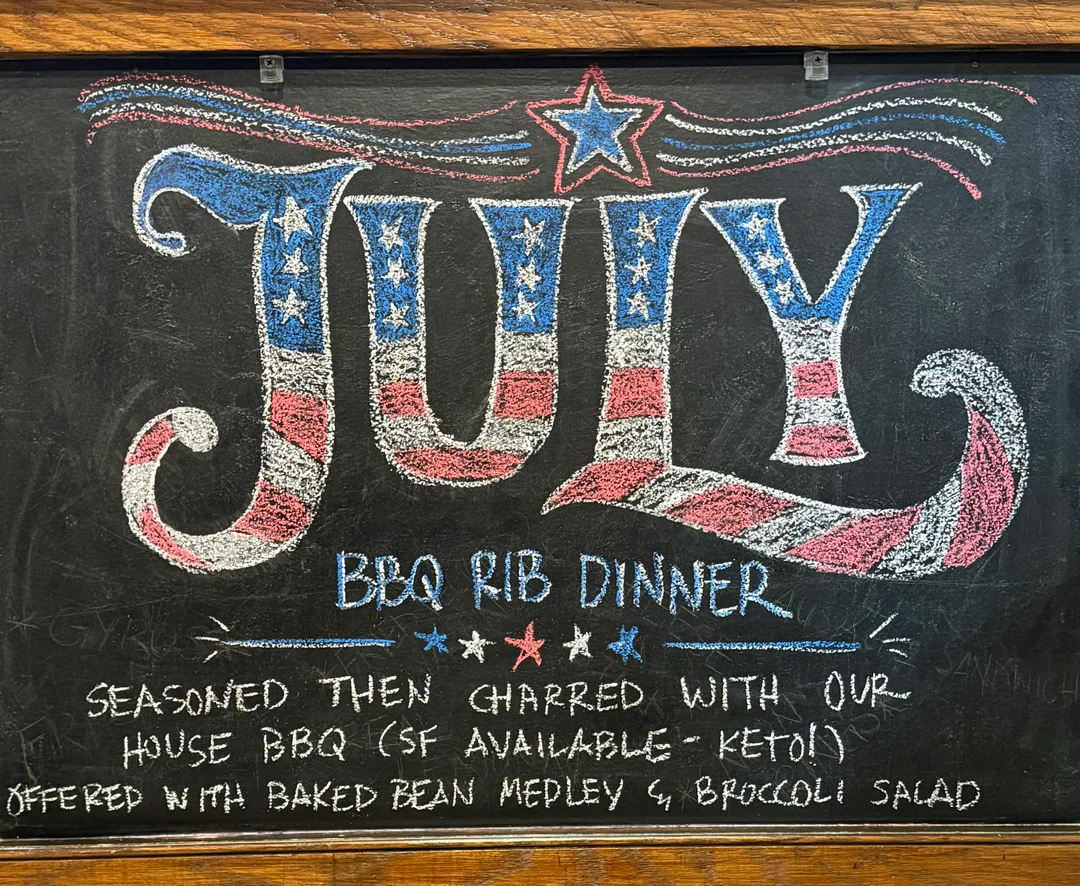 JULY
BBQ RIB DINNER
SEASONED THEN CHARRED WITH OUR
HOUSE BBQ (SF AVAILABLE - KETO!)
OFFERED WITH BAKED BEAN MEDLEY & BROCCOLI SALAD